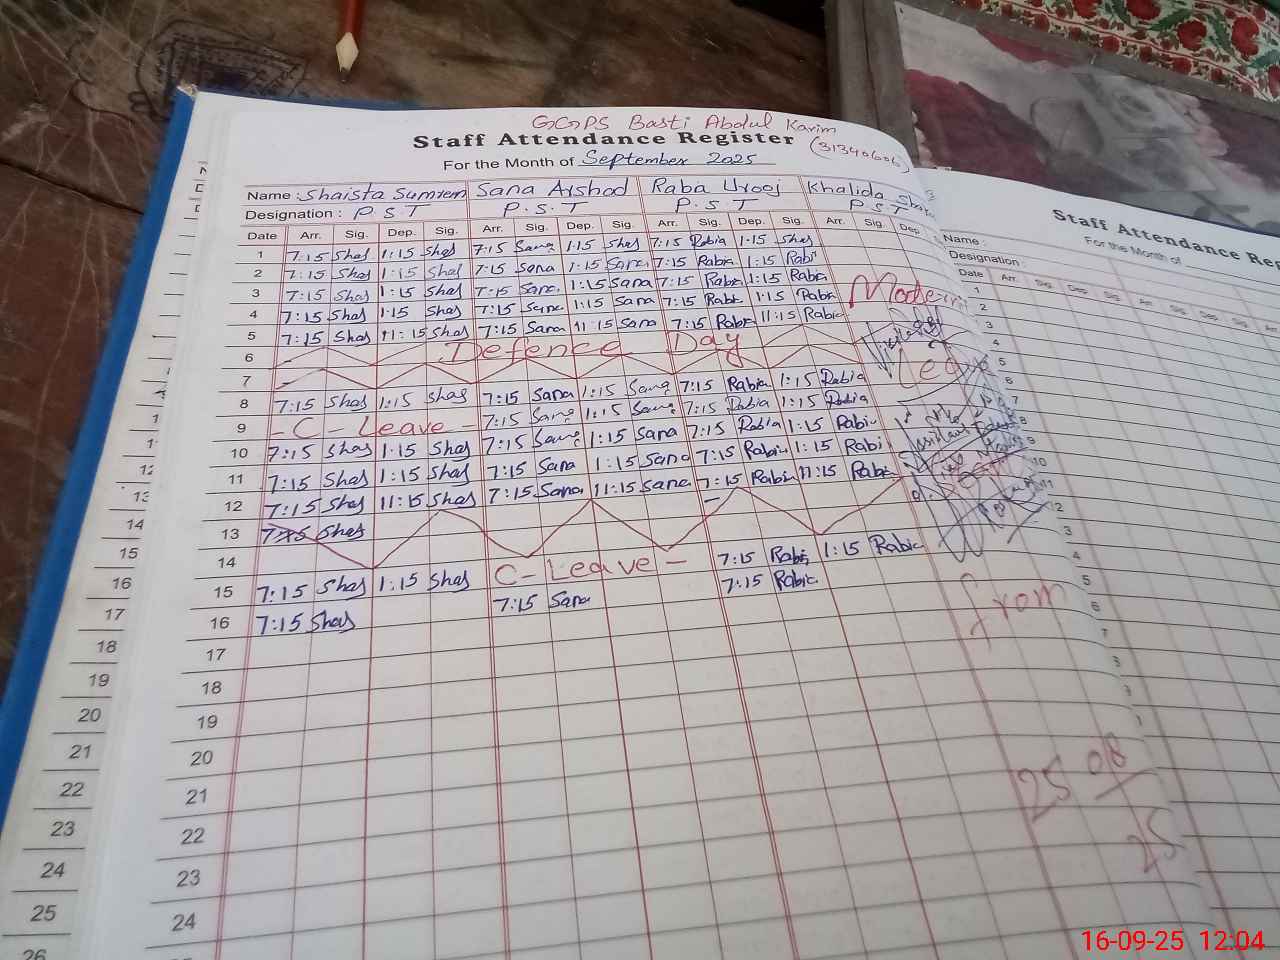 GGPS Basti Abdul Karim
Staff Attendance Register
(31340606)
For the Month of September 2025
Name : Shaista Sumrem Sana Arshad Raba Urooj Khalida
Designation : P.S.T P.S.T P.S.T P.S.T
Date Arr. Sig. Dep. Sig. Arr. Sig. Dep. Sig. Arr. Sig. Dep. Sig. Arr. Sig. Dep.
1 7:15 Shas 1:15 Shas 7:15 Sana 1:15 Shas 7:15 Rabia 1:15 Shas
2 7:15 Shas 1:15 Shas 7:15 Sana 1:15 Sana 7:15 Rabia 1:15 Rabi
3 7:15 Shas 1:15 Shas 7:15 Sana 1:15 Sana 7:15 Rabia 1:15 Rabia
4 7:15 Shas 1:15 Shas 7:15 Sana 1:15 Sana 7:15 Rabia 1:15 Rabia
5 7:15 Shas 11:15 Shas 7:15 Sana 11:15 Sana 7:15 Rabia 11:15 Rabia
6 Defence Day
7
8 7:15 Shas 1:15 Shas 7:15 Sana 1:15 Sana 7:15 Rabia 1:15 Rabia
9 - C - Leave - 7:15 Sana 1:15 Sana 7:15 Rabia 1:15 Rabia
10 7:15 Shas 1:15 Shas 7:15 Sana 1:15 Sana 7:15 Rabia 1:15 Rabi
11 7:15 Shas 1:15 Shas 7:15 Sana 1:15 Sana 7:15 Rabi 1:15 Rabi
12 7:15 Shas 11:15 Shas 7:15 Sana 11:15 Sana 7:15 Rabi 11:15 Rabi
13 7:15 Shas
14
15 7:15 Shas 1:15 Shas C - Leave - 7:15 Rabi 1:15 Rabia
16 7:15 Shas 7:15 Sana 7:15 Rabia
17
18
19
20
21
22
23
24
from
25 08
25
Staff Attendance Reg
For the Month of
Name :
Designation :
Date Arr. Sig. Dep. Sig. Arr. Sig. Dep. Sig. Arr.
1
2
3
4
5
6
7
8
9
10
11
13
14
15
16
17
18
19
20
21
22
23
24
25
26
16-09-25 12:04